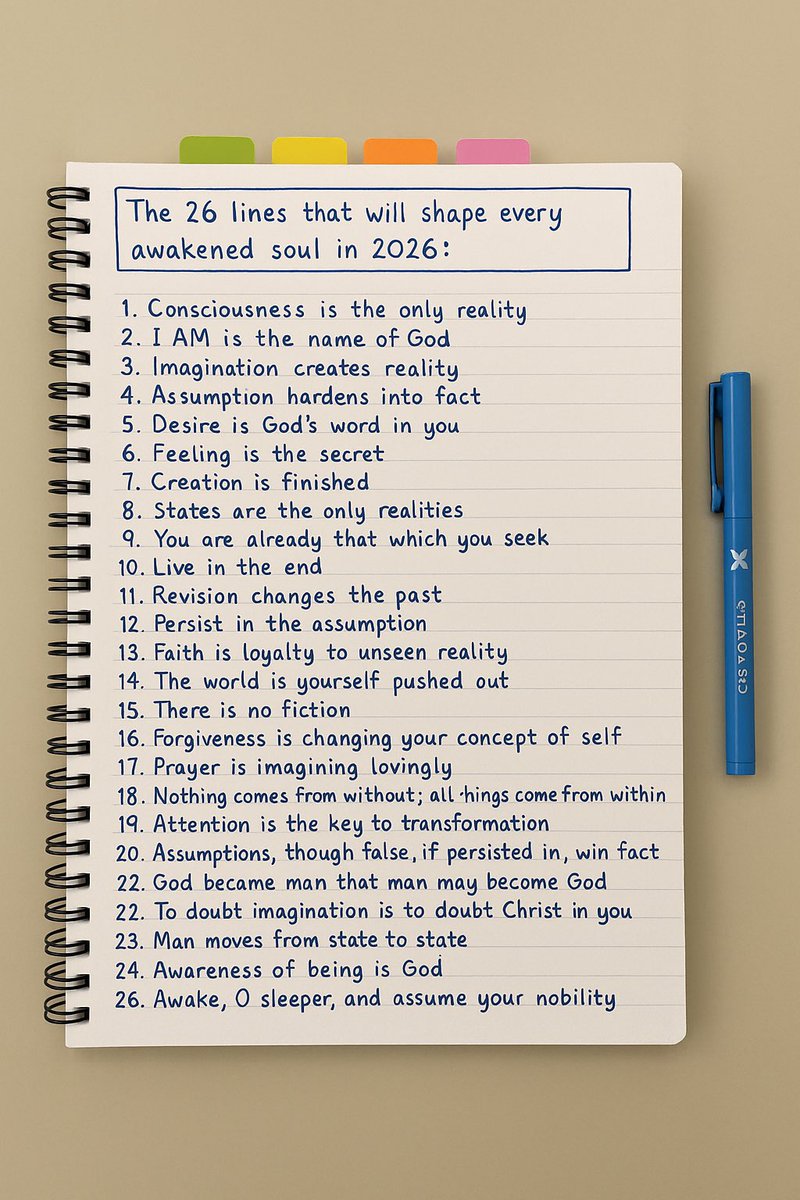 The 26 lines that will shape every
awakened soul in 2026:
1. Consciousness is the only reality
2. I AM is the name of God
3. Imagination creates reality
4. Assumption hardens into fact
5. Desire is God's word in you
6. Feeling is the secret
7. Creation is finished
8. States are the only realities
9. You are already that which you seek
10. Live in the end
11. Revision changes the past
12. Persist in the assumption
13. Faith is loyalty to unseen reality
14. The world is yourself pushed out
15. There is no fiction
16. Forgiveness is changing your concept of self
17. Prayer is imagining lovingly
18. Nothing comes from without; all hings come from within
19. Attention is the key to transformation
20. Assumptions, though false, if persisted in, win fact
22. God became man that man may become God
22. To doubt imagination is to doubt Christ in you
23. Man moves from state to state
24. Awareness of being is God
26. Awake, O sleeper, and assume your nobility